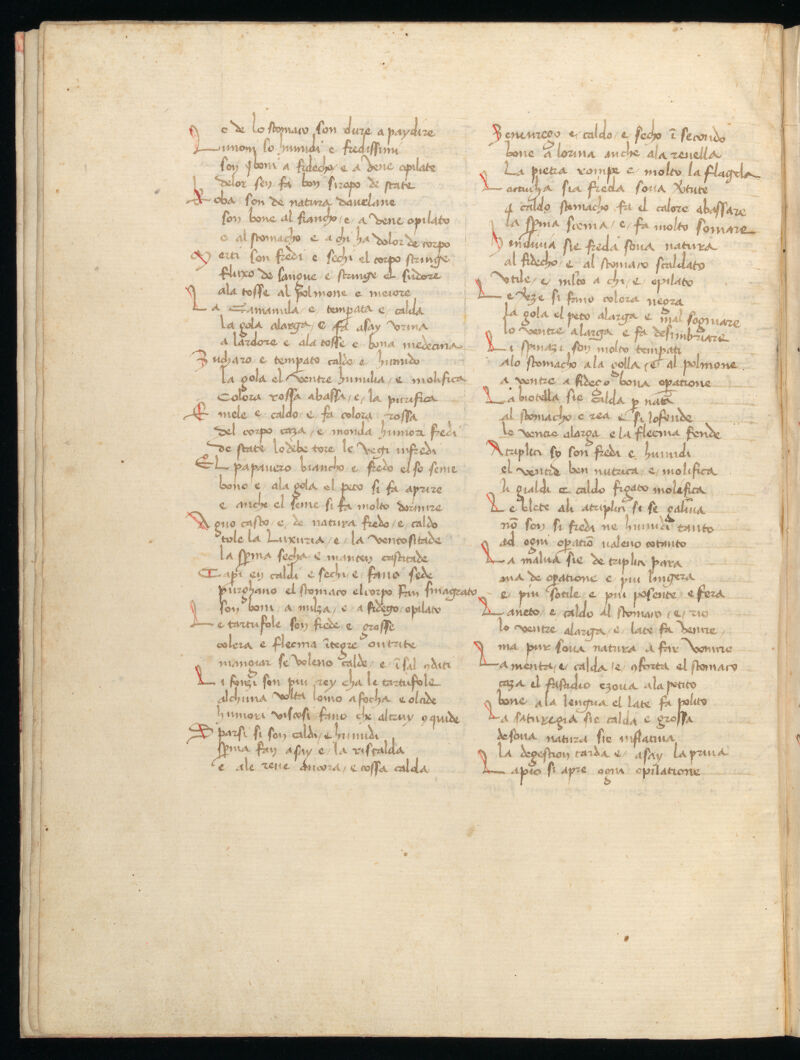 e de lo stomaco son dure a paydire
Limoni so humidi e fredissimi
son boni a fidecho e a bene opilate
dolor sen fa bon siropo de state
son de natura davelane
son bone al fiancho e a bene opilato
e al stomacho e a chi ha dolor de corpo
son fredi e sechi el corpo stringe
fluxo de sangue e stringe el sudore
ala tosse al polmone e
La e temperata e calda
la gola alarga e fa asay orina
a lardore e ala tosse e bona medecina
Zucharo e temperato caldo e humido
la gola el ventre humilia e molifica
Colora rossa abassa e la purifica
mele e caldo e fa colora rossa
del corpo caza e monda humori fredi
De state lo debe tore le infredi
El papavero biancho e fredo el so seme
bono e ala gola el peto si fa aprire
e anche el seme si fa molto dormire
Agno casto e de natura fredo e caldo
tole la Luxuria e la ventositade
la sperma secha e manten castitade
Capari en caldi e sechi e fano sede
purghano el stomaco el corpo fan smagrato
son boni a milza e a fidego opilato
Le tartufole son frede e grosse
colera e flecma
manzar se voleno calde e
Li fonzi son piu rey cha le tartufole
alchuna volta lomo afocha e olcide
humori viscosi fano che alcuy ocide
Sparsi si son caldi e humidi
sperma fan asay e la riscalda
e ale rene ancora e cossa calda
e caldo e secho in secondo
bone a lorina anche ala renella
La pietra rompe e molto la flagela
Lactucha sia freda soua vertute
el caldo stomacho fa el calore abassare
la sperma scema e fa molto somare
Indivia sie freda soua natura
al fidecho e al stomaco scaldato
Utile e molto a chi e opilato
Le verze si fano colora negra
la gola el peto alarga e mal sogniare
lo ventre alarga e fa
Li spinazi son molto temperati
alo stomacho ala golla e al polmone
a ventre a fideco bona operatione
La biotella sie calda per nata
al stomacho e rea e si lofende
lo ventre alarga e la flecma fende
Atriplici son fredi e humidi
el ventre ben nutrica e molifica
li gialdi e caldo figato molifica
Le blete ali atriplici si se
non son si fredi ne humidi tanto
ad ogni operation valeno cotanto
La malva sie de triplici para
ma de operatione e piu lingera
e piu sotile e piu posente e fera
Laneto e caldo al stomaco e rio
lo ventre alarga e late fa venire
ma pur soua natura a far vomire
La menta e calda e conforta el stomaco
caza el fastidio ala petito
bone ala lengua el late fa polito
La saturegia sie calda e grossa
de soua natura sie inflativa
la degestion tarda e asay la priva
Lapio si apre ogni opilatione